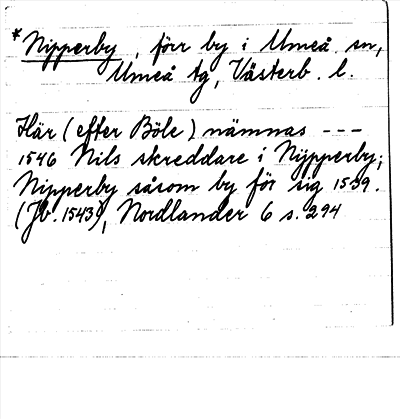 * Nipperby, förr by i Umeå sn,
Umeå tg, Västerb. l.
Här (efter Böle) nämnas ---
1546 Nils skreddare i Nijpperby;
Nipperby såsom by för sig 1539.
(Jb. 1543), Nordlander 6 s. 294